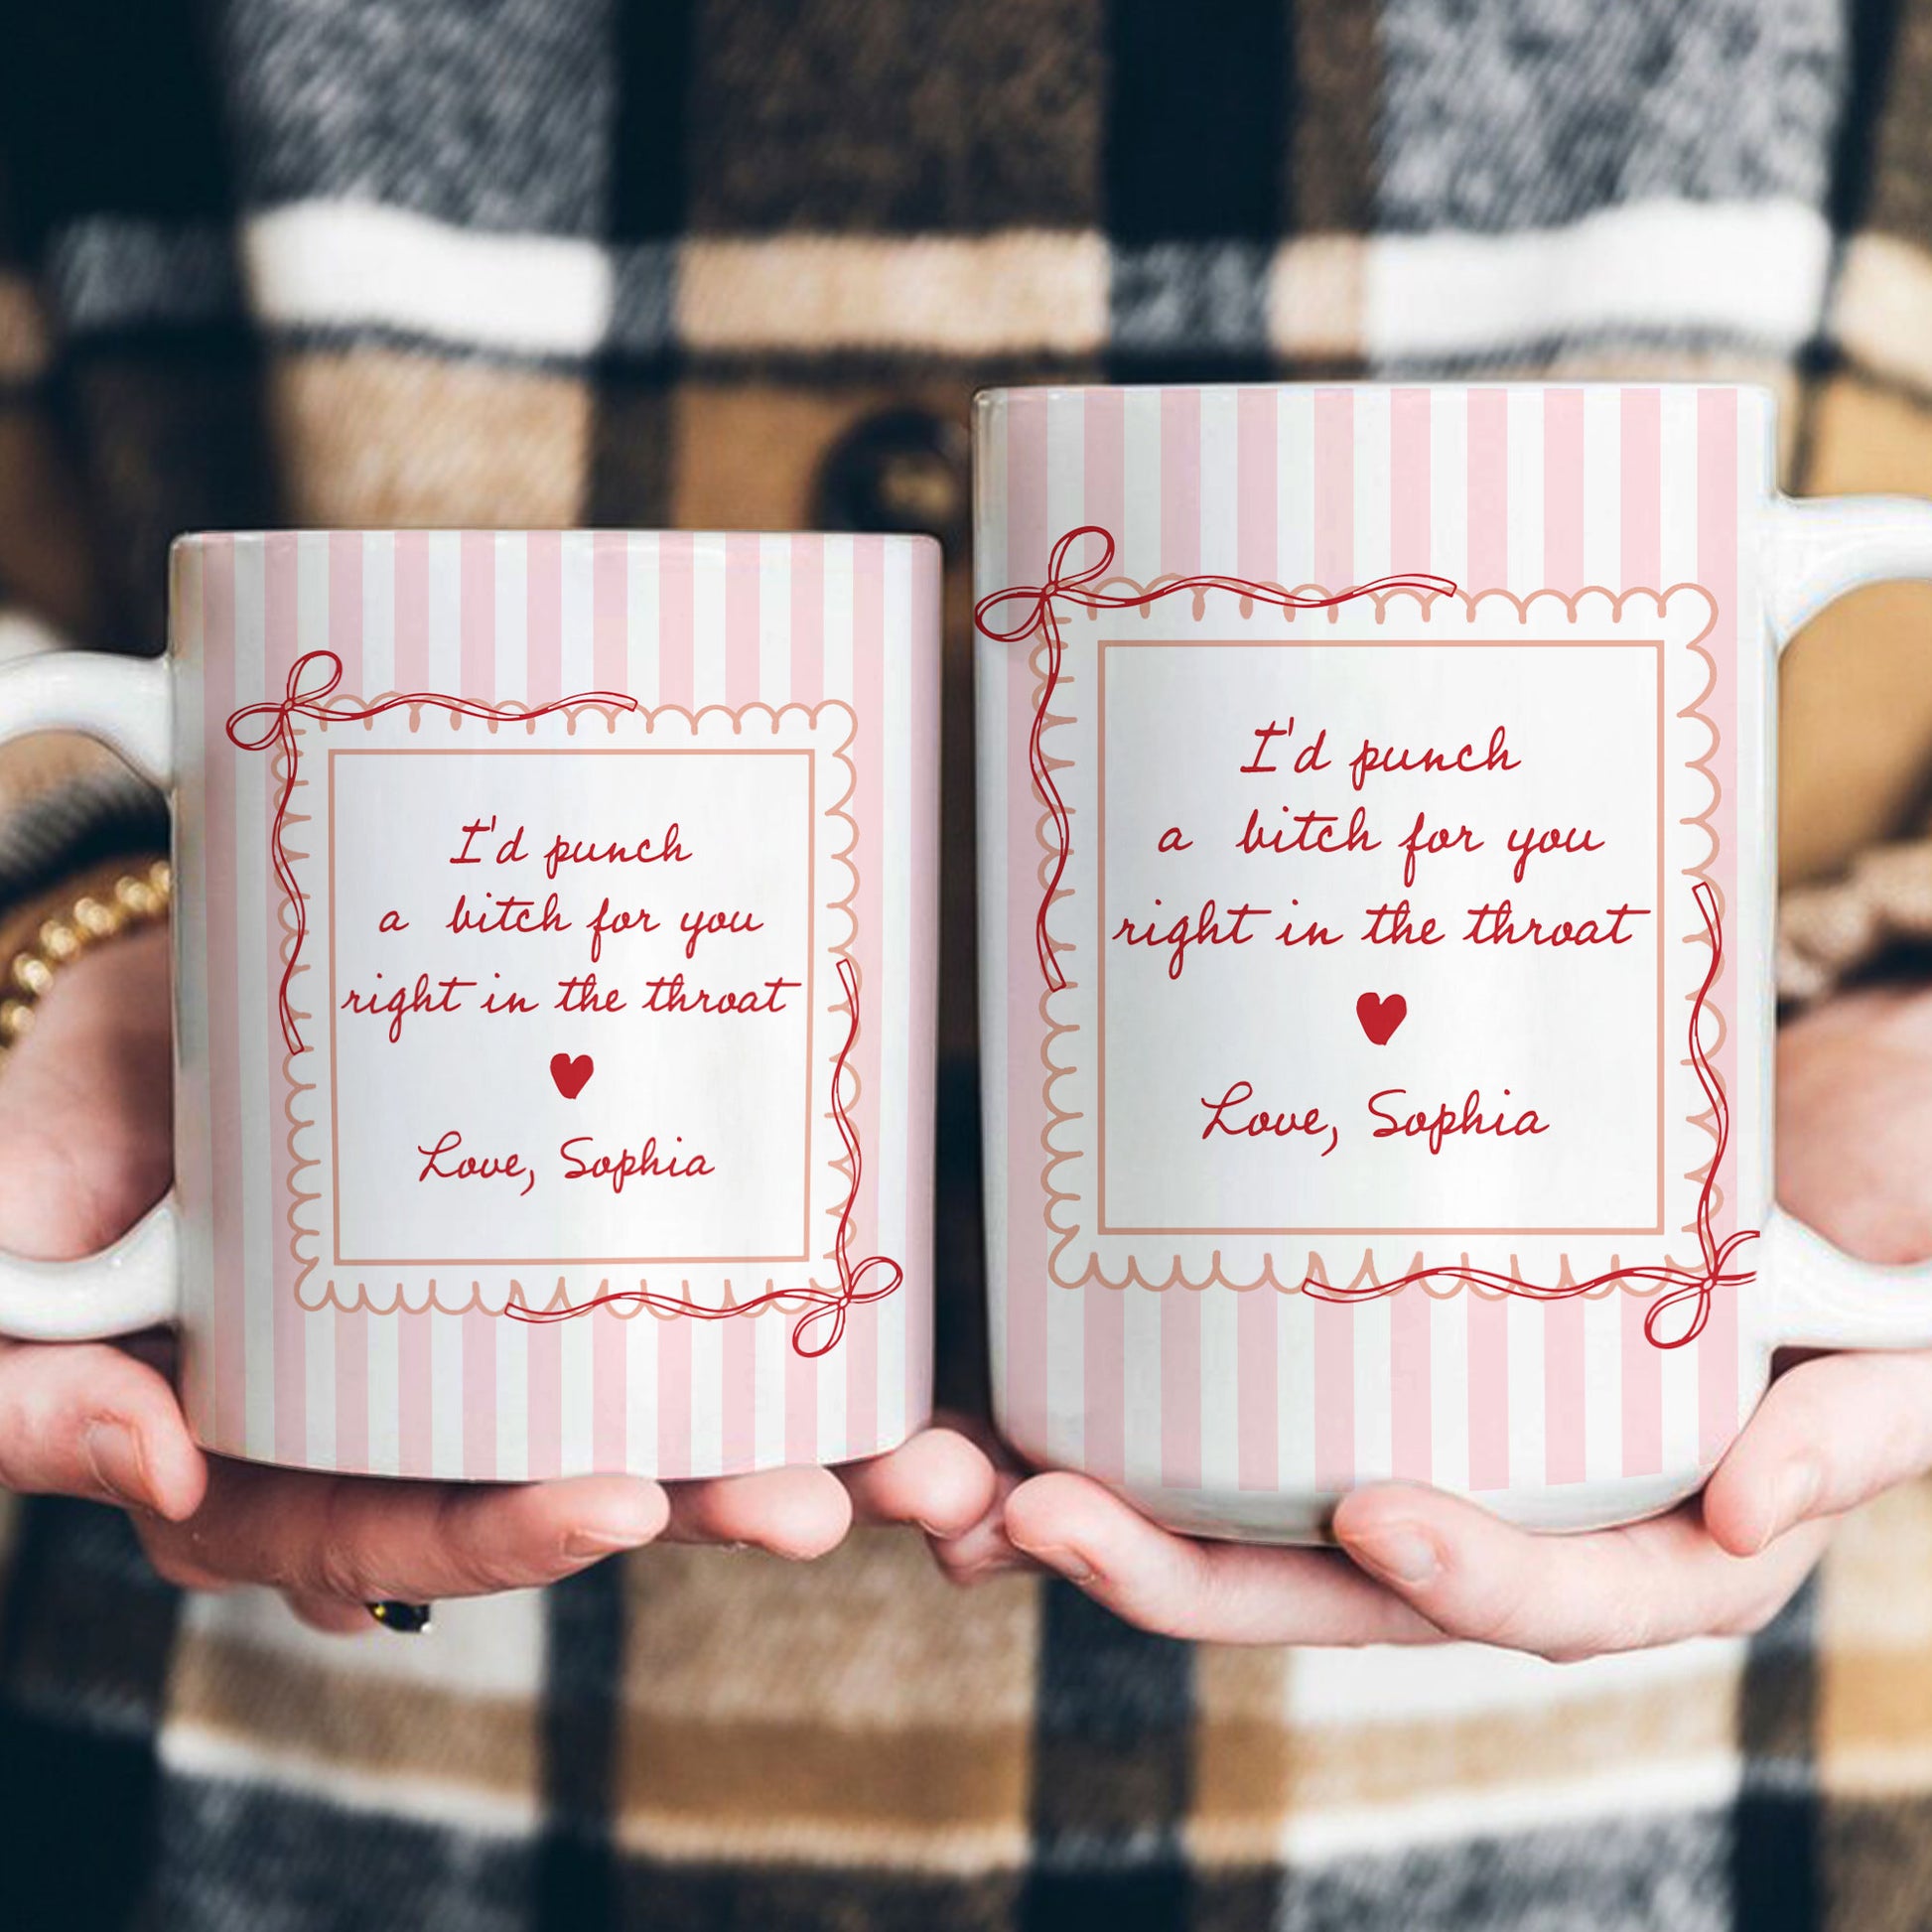 I'd punch
a bitch for you
right in the throat
Love, Sophia
I'd punch
a bitch for you
right in the throat
Love, Sophia